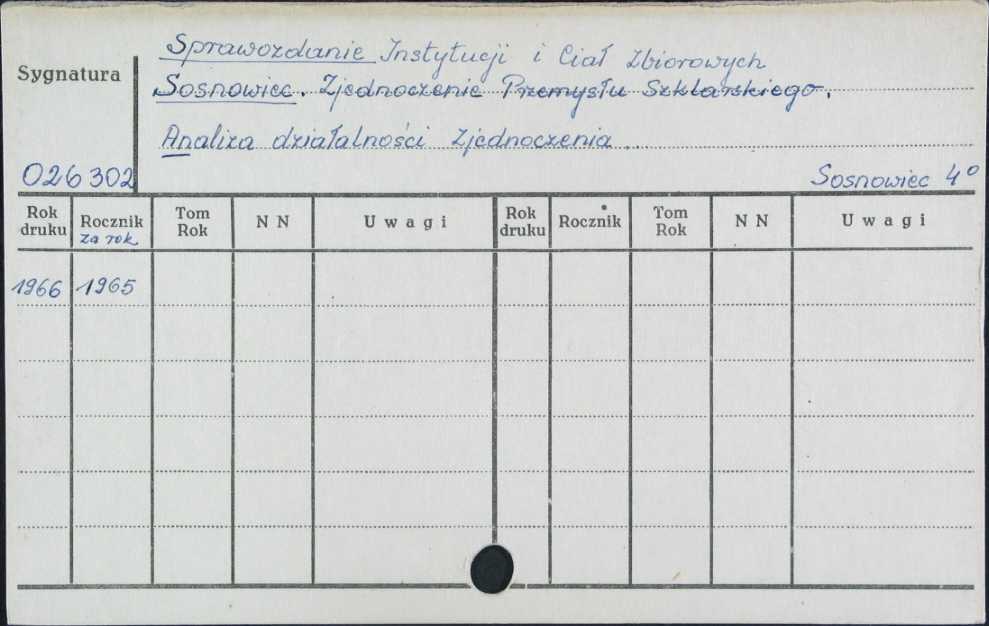 Sprawozdanie Instytucji i Ciał Zbiorowych
Sygnatura
Sosnowiec. Zjednoczenie Przemysłu Szklarskiego.
Analiza działalności Zjednoczenia ...
026302
Sosnowiec 4°
Rok druku Rocznik za rok Tom Rok N N Uwagi Rok druku Rocznik Tom Rok N N Uwagi
1966 1965